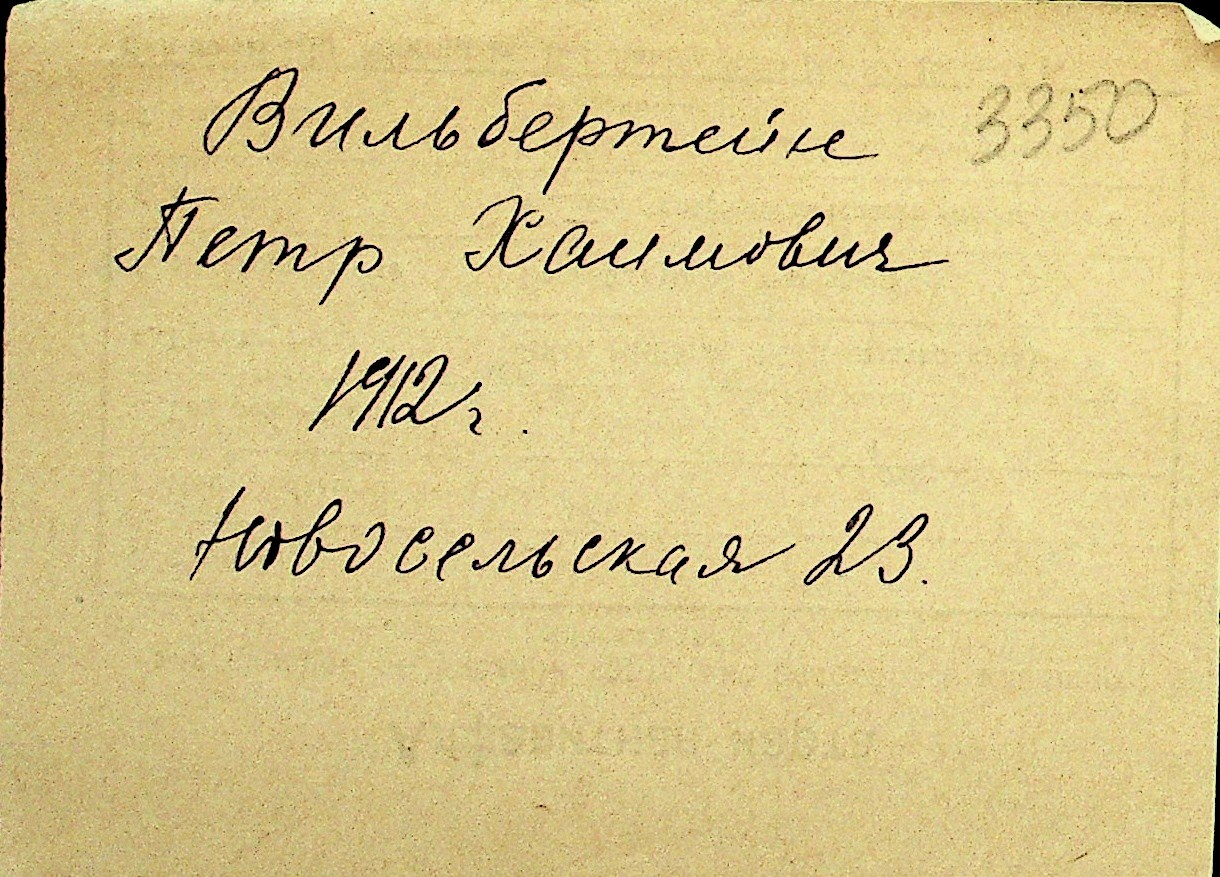 Вильбертейн 3350
Петр Хаимович
1912 г.
Новосельская 23.